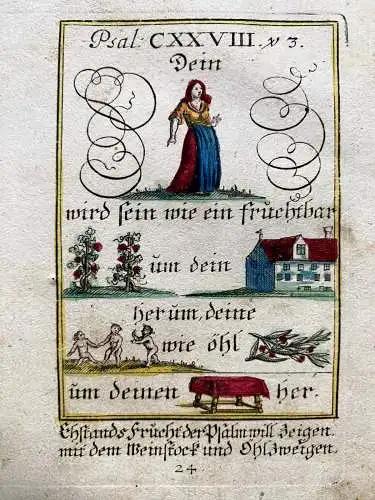 Psal. CXXVIII. v 3.
Dein
wird sein wie ein fruchtbar
um dein
herum, deine
wie öhl
um deinen her.
Ehstands Frücht der Psalm will Zeigen.
mit dem Weinstock und Öhlzweigen.
24